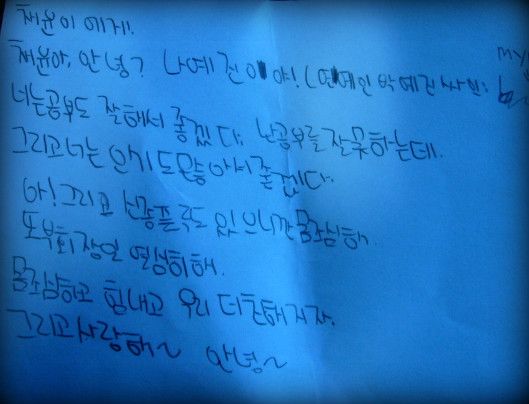 채윤이 에게!
my
채윤아, 안녕? 나예건이야! (연예인 박예건싸인:
너는공부도 잘해서 좋겠다. 난공부를잘못하는데.
그리고너는 인기도많아서좋겠다.
아! 그리고 신종플루도 있으니깐몸조심해.
또부회장일 열심히해.
몸조심하고 힘내고 우리 더친해지자.
그리고사랑해~ 안녕~